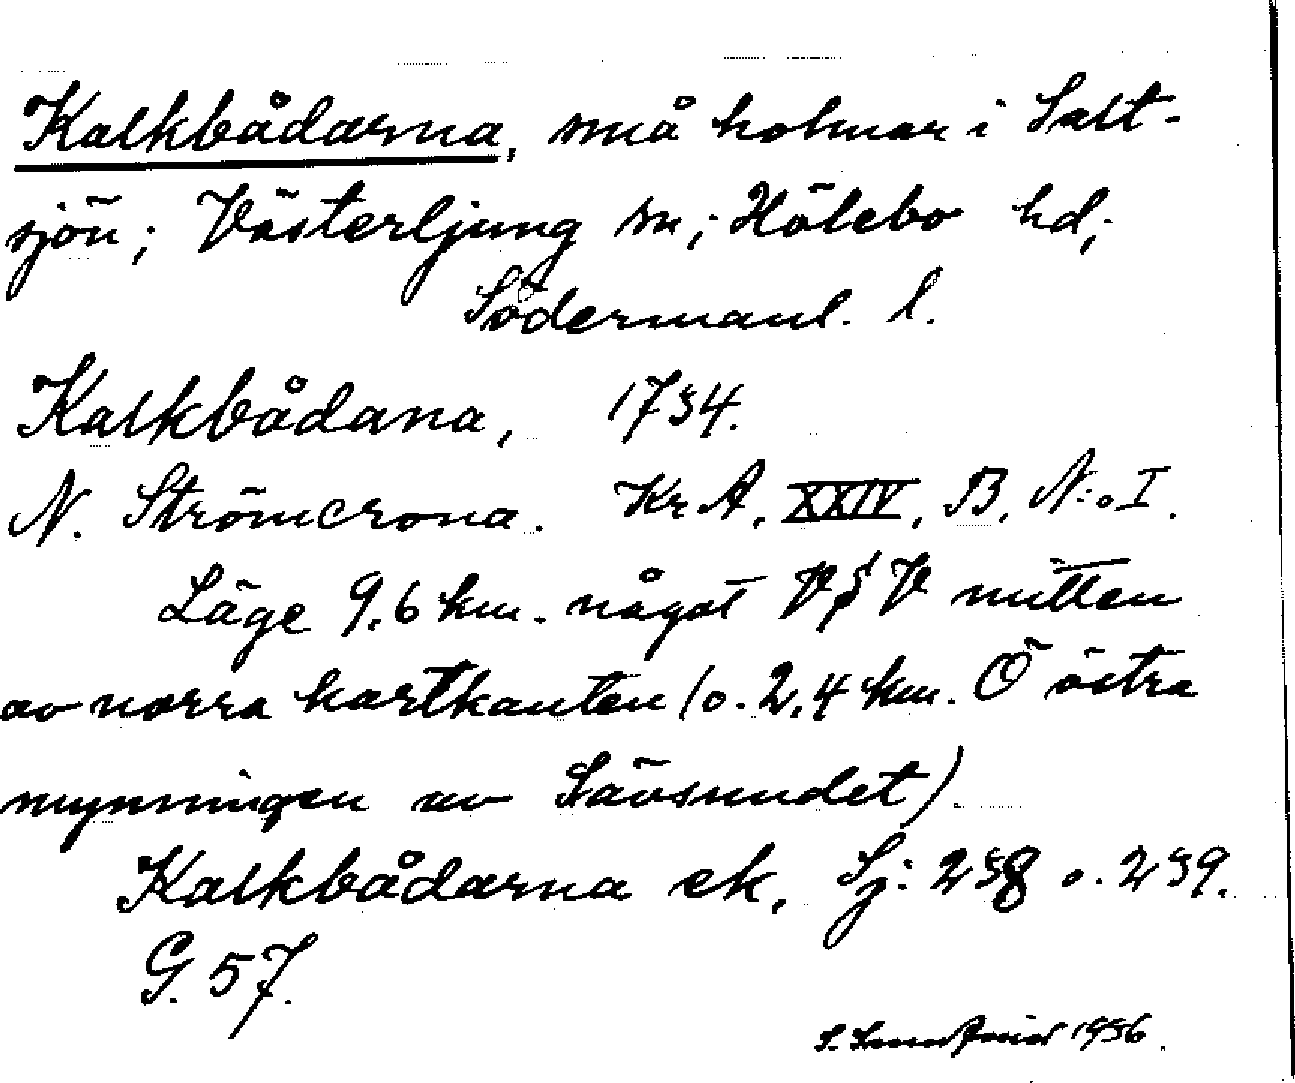 Kalkbådarna, små holmar i Salt-
sjön; Västerljung sn; Hölebo hd;
Södermanl. l.
Kalkbådana, 1734.
N. Strömcrona. Kr A, XXIV, B, N:o I.
Läge 9,6 km. något V§V mitten
av norra kartkanten (o. 2,4 km. Ö östra
mynningen av Sävsundet)
Kalkbådarna ek, Sj: 238 o. 239.
G. 57.
S. 1936.